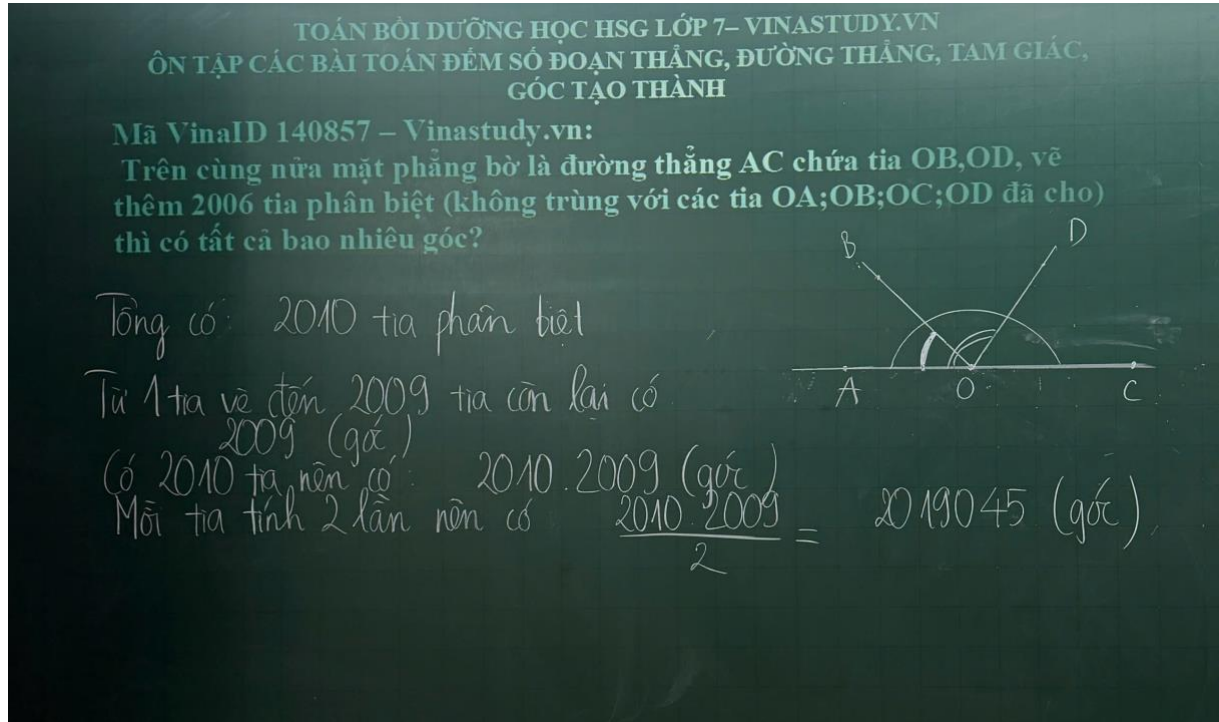 TOÁN BỒI DƯỠNG HỌC HSG LỚP 7– VINASTUDY.VN
ÔN TẬP CÁC BÀI TOÁN ĐẾM SỐ ĐOẠN THẲNG, ĐƯỜNG THẲNG, TAM GIÁC,
GÓC TẠO THÀNH
Mã VinaID 140857 – Vinastudy.vn:
Trên cùng nửa mặt phẳng bờ là đường thẳng AC chứa tia OB,OD, vẽ
thêm 2006 tia phân biệt (không trùng với các tia OA;OB;OC;OD đã cho)
thì có tất cả bao nhiêu góc?
B
D
A
O
C
Tổng có: 2010 tia phân biệt
Từ 1 tia vẽ đến 2009 tia còn lại có
2009 (góc)
Có 2010 tia nên có: 2010.2009 (góc)
Mỗi tia tính 2 lần nên có 2010.2009/2 = 2019045 (góc)